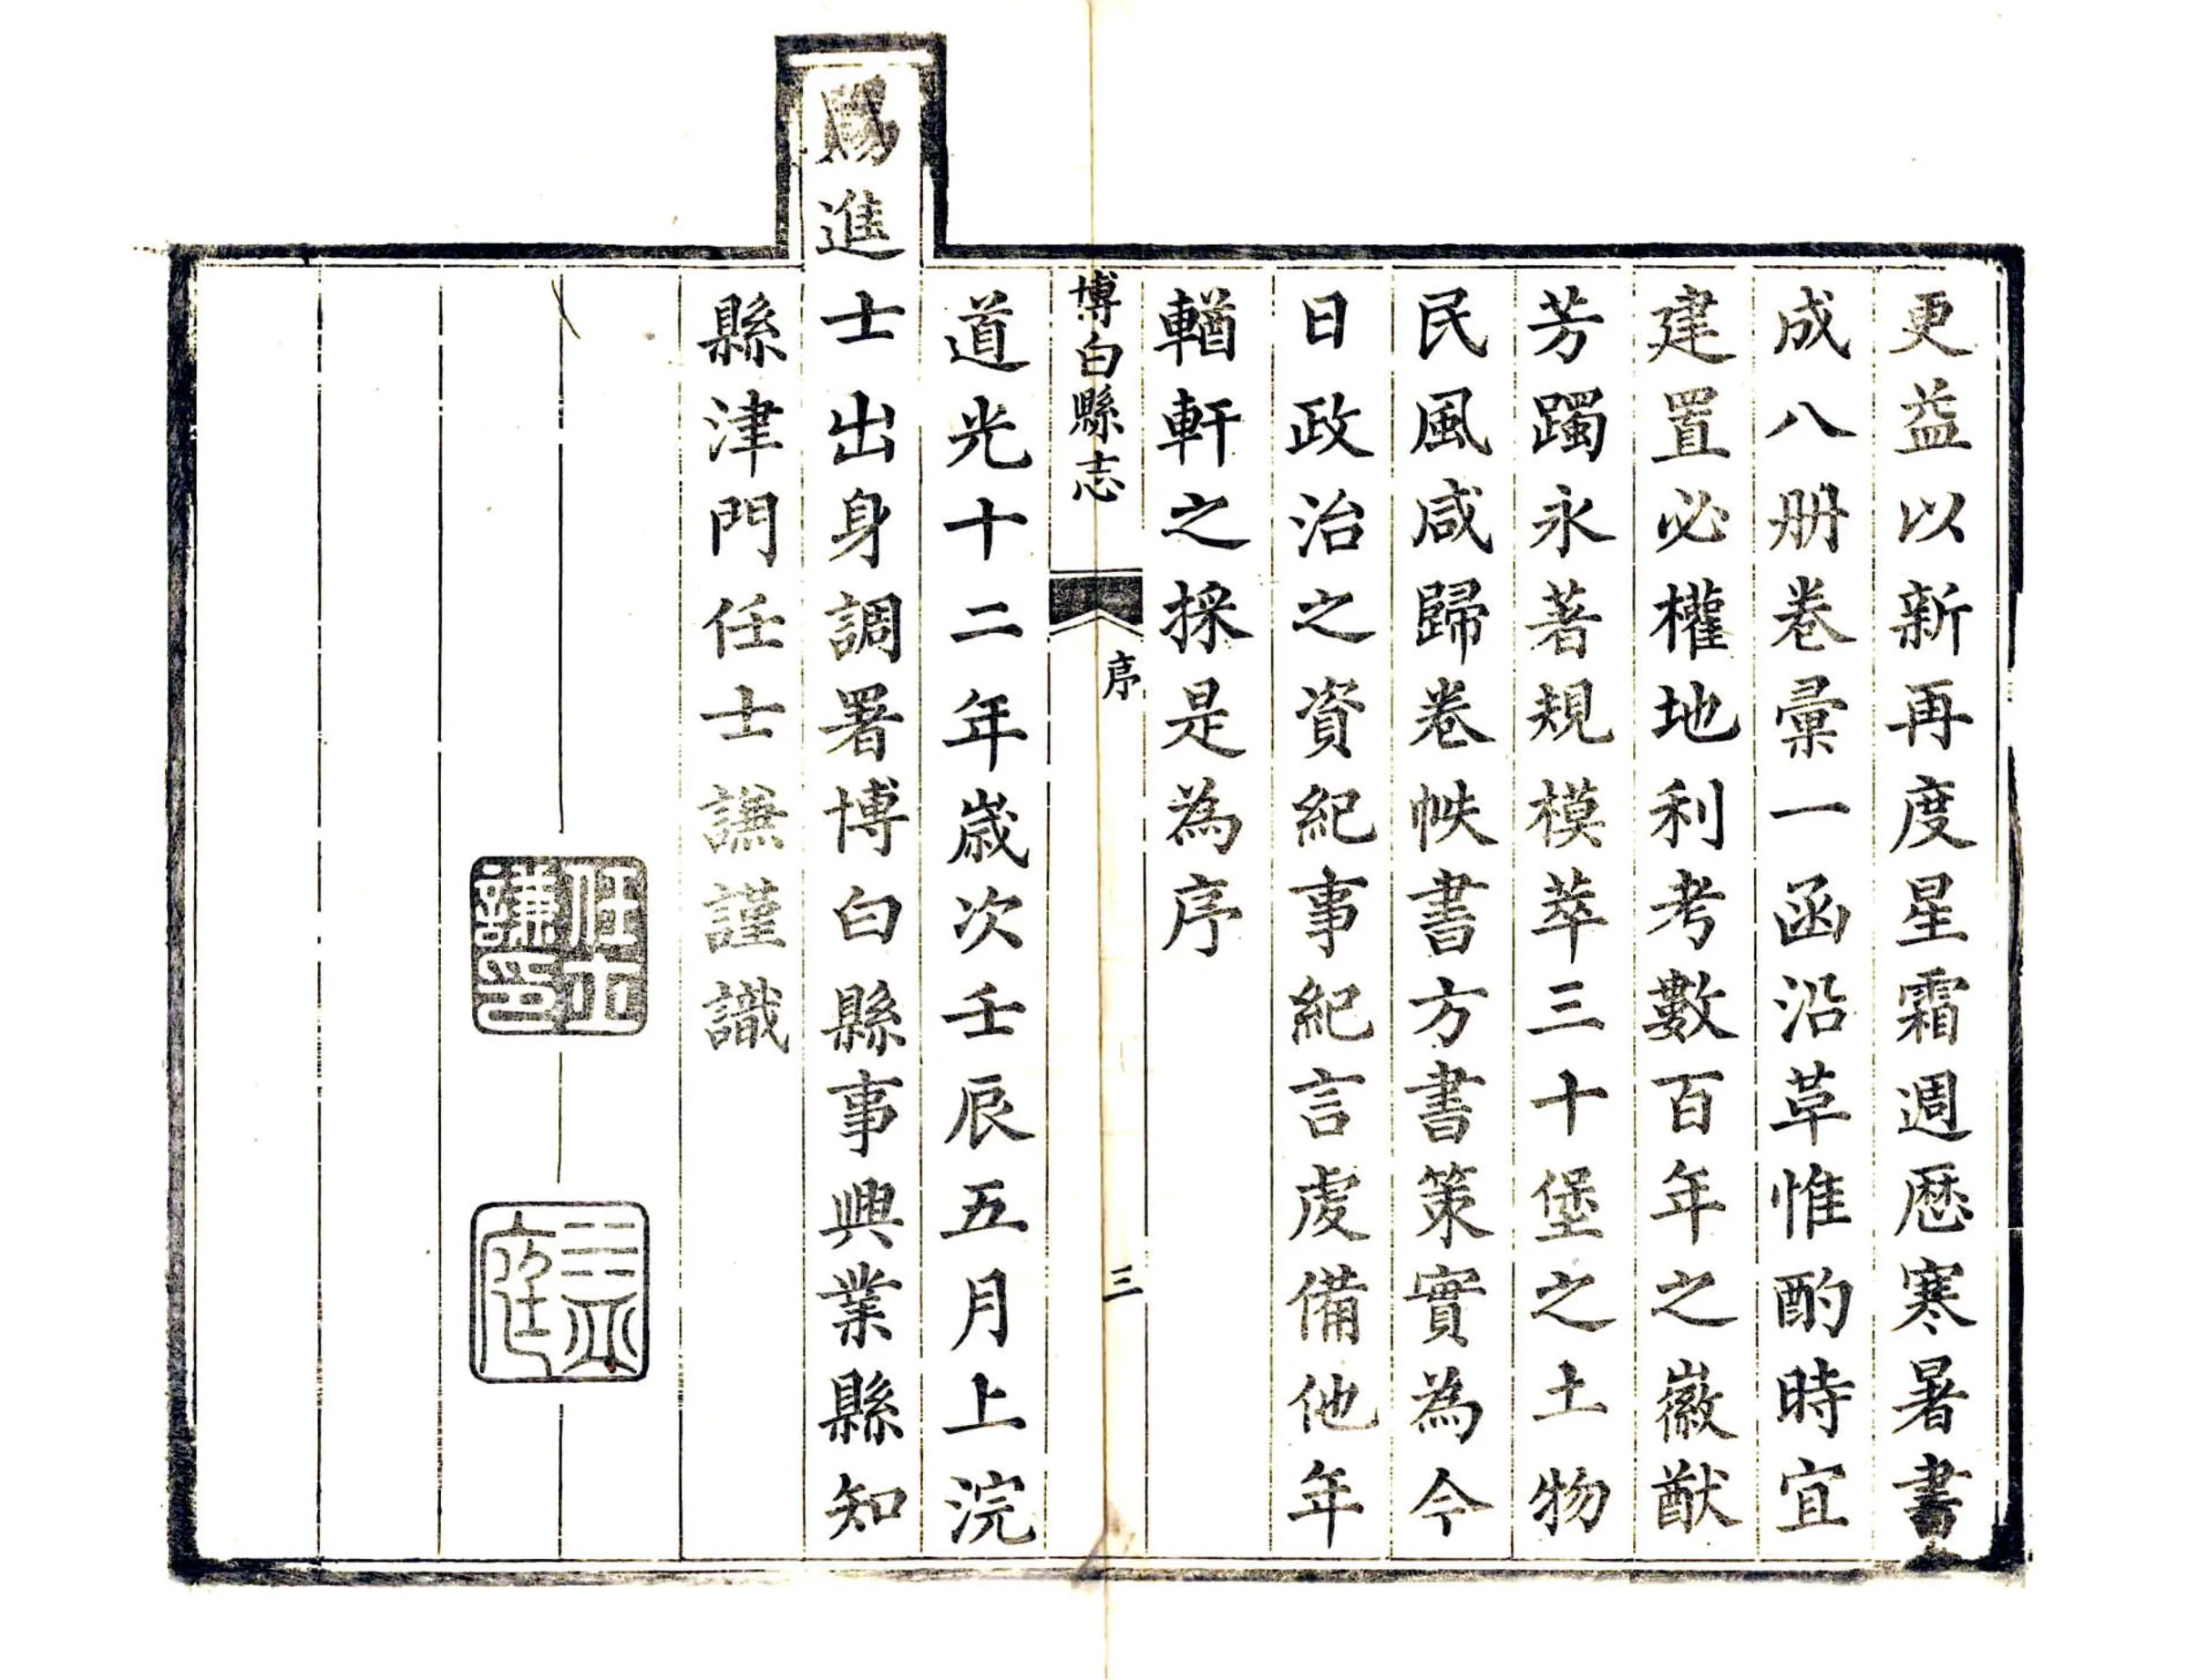 更益以新再度星霜週歴寒暑書
成八册卷彙一函沿草惟酌時宜
建置必權地利考數百年之徽猷
芳躅永著規模萃三十堡之土物
民風咸歸卷帙書方書策實為今
日政治之資紀事紀言處備他年
輶軒之採是為序
博白縣志
序
三
道光十二年歲次壬辰五月上浣
賜進士出身調署博白縣事興業縣知
縣津門任士謙謹識
任士謙印
三益庭